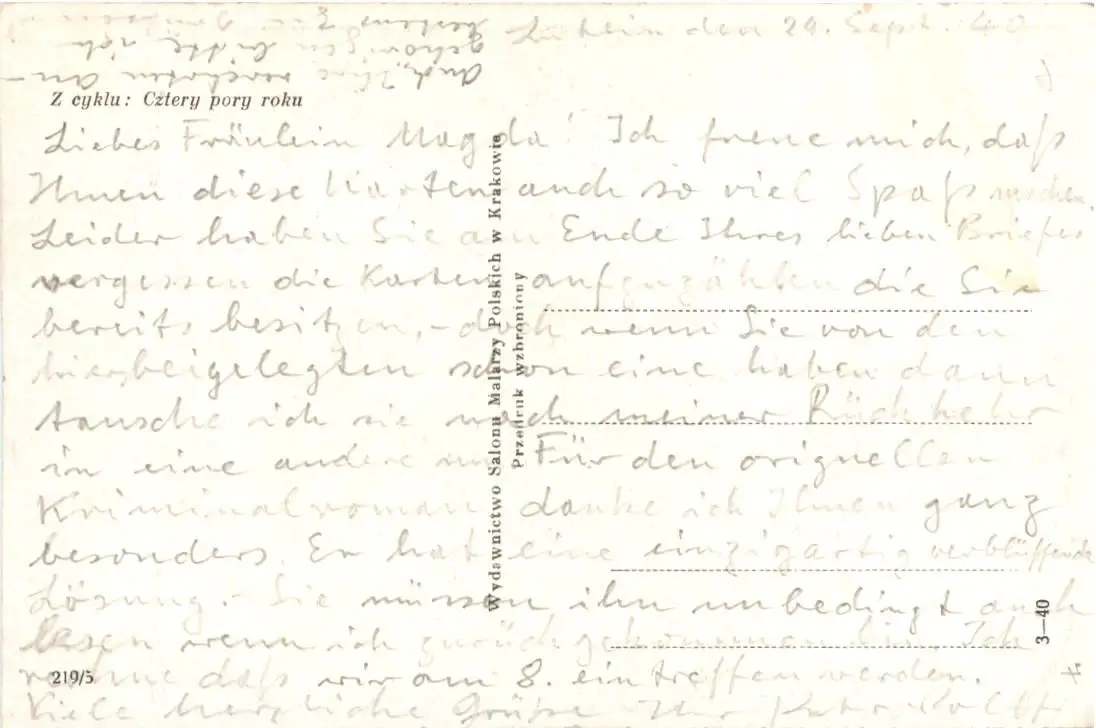 den 29. Sept. 40
Z cyklu: Cztery pory roku
Liebes Fräulein Magda! Ich freue mich, daß
Ihnen diese Karten auch so viel Spaß machen.
Leider haben Sie am Ende Ihres lieben Briefes
vergessen die Karten aufzuzählen die Sie
bereits besitzen, – doch wenn Sie von den
hierbeigelegten schon eine haben dann
tausche ich sie nach meiner Rückkehr
in eine andere um. Für den originellen
Kriminalroman danke ich Ihnen ganz
besonders. Er hat eine einzigartig verblüffende
Lösung. – Sie müssen ihn unbedingt auch
lesen wenn ich zurückgekommen bin. Ich
daß wir am 8. eintreffen werden.
Viele herzliche Grüße Ihr Peter
Auch Ihre verehrten
bitte ich
bestens zu
Wydawnictwo Salonu Malarzy Polskich w Krakowie
Przedruk wzbroniony
3—40
219/5